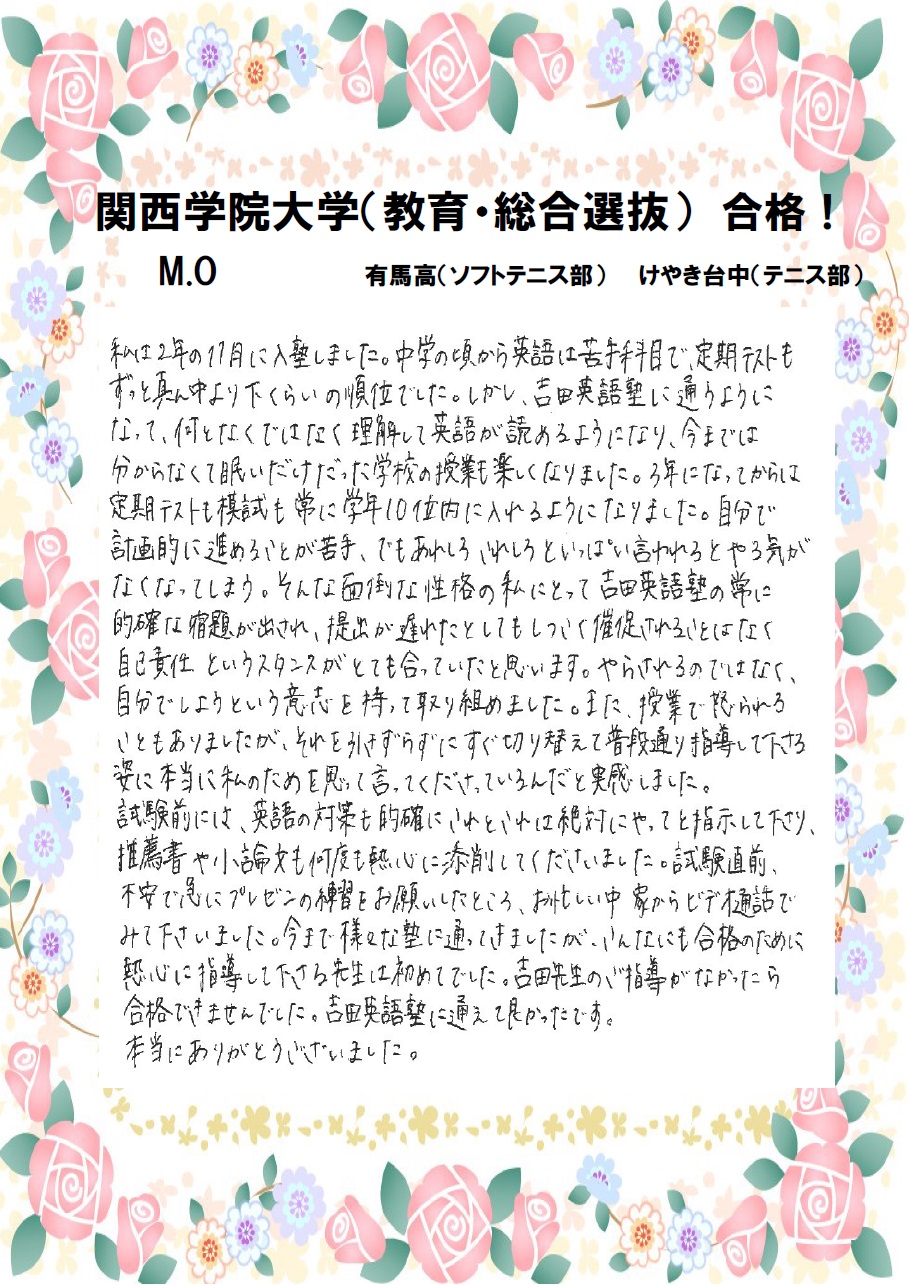 関西学院大学(教育・総合選抜) 合格!
M.O 有馬高(ソフトテニス部) けやき台中(テニス部)
私は2年の11月に入塾しました。中学の頃から英語は苦手科目で、定期テストも
ずっと真ん中より下くらいの順位でした。しかし、吉田英語塾に通うように
なって、何となくではなく理解して英語が読めるようになり、今までは
分からなくて眠いだけだった学校の授業も楽しくなりました。3年になってからは
定期テストも模試も常に学年10位内に入れるようになりました。自分で
計画的に進めることが苦手、でもあれしろこれしろといっぱい言われるとやる気が
なくなってしまう。そんな面倒な性格の私にとって吉田英語塾の常に
的確な宿題が出され、提出が遅れたとしてもしつこく催促されることはなく
自己責任というスタンスがとても合っていたと思います。やらされるのではなく、
自分でしようという意志を持って取り組めました。また、授業で怒られる
こともありましたが、それを引きずらずにすぐ切り替えて普段通り指導して下さる
姿に本当に私のためを思って言ってくださっているんだと実感しました。
試験前には、英語の対策も的確にこれとこれは絶対にやってと指示して下さり、
推薦書や小論文も何度も熱心に添削してくださいました。試験直前、
不安で急にプレゼンの練習をお願いしたところ、お忙しい中家からビデオ通話で
みて下さいました。今まで様々な塾に通ってきましたが、こんなにも合格のために
熱心に指導して下さる先生は初めてでした。吉田先生のご指導がなかったら
合格できませんでした。吉田英語塾に通えて良かったです。
本当にありがとうございました。